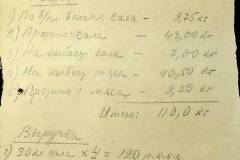 1) По б/пл. бонажи сала — 9,75 кг
2) Продано: сала — 43,00 кг
3) На колбасу сала — 7,00 кг
4) На колбасу мяса — 40,50 кг
5) Продано: мяса — 9,50 кг
Итого: 110,0 кг
Выручка
1) 30 кг сала х 4 = 120 р.